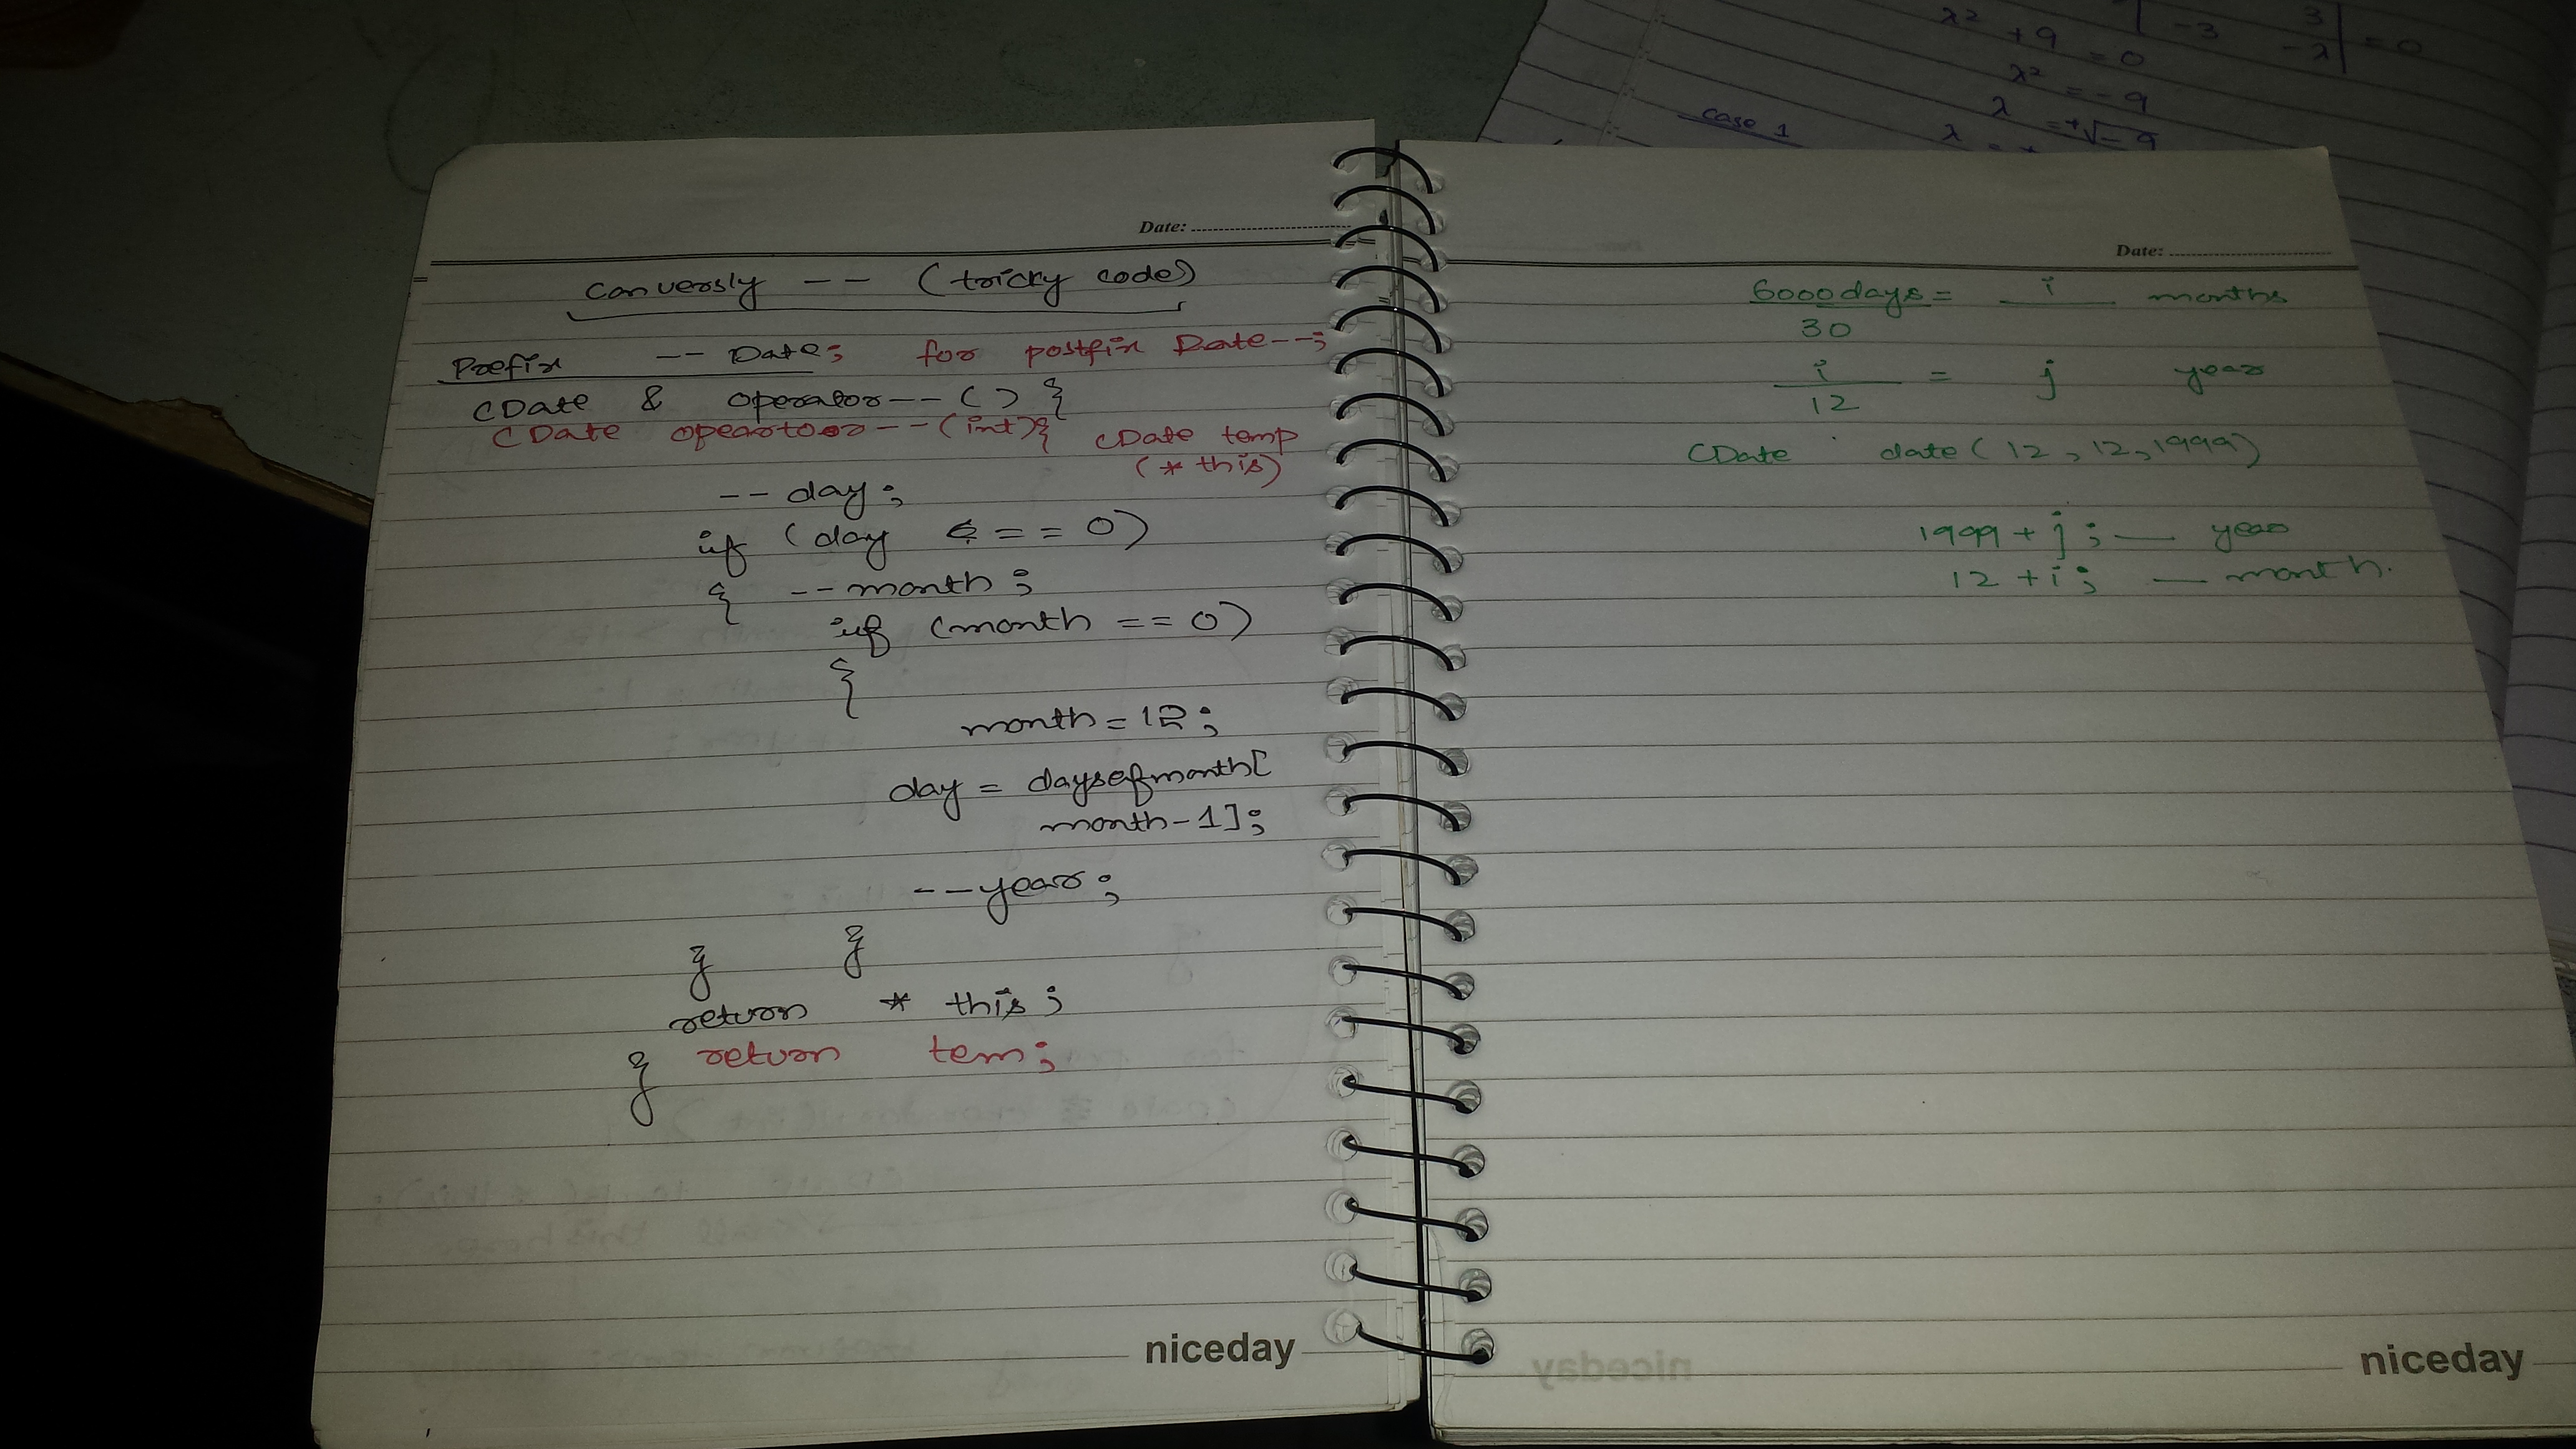 Date:
Conversly -- (tricky code)
Prefix -- Date; for postfix Date--;
CDate & operator--() {
CDate opeartoor--(int){ CDate temp
(* this)
-- day;
if (day == 0)
{ -- month;
if (month == 0)
{
month = 12;
day = daysofmonth[
month-1];
--year;
} }
return * this;
} return tem;
niceday
λ² + 9 = 0
-3 -λ = 0
3
λ² = -9
λ = +√-9
case 1 λ
Date:
6000days = i months
30
i = j year
12
CDate date(12,12,1999)
1999 + j; — year
12 + i; — month.
niceday